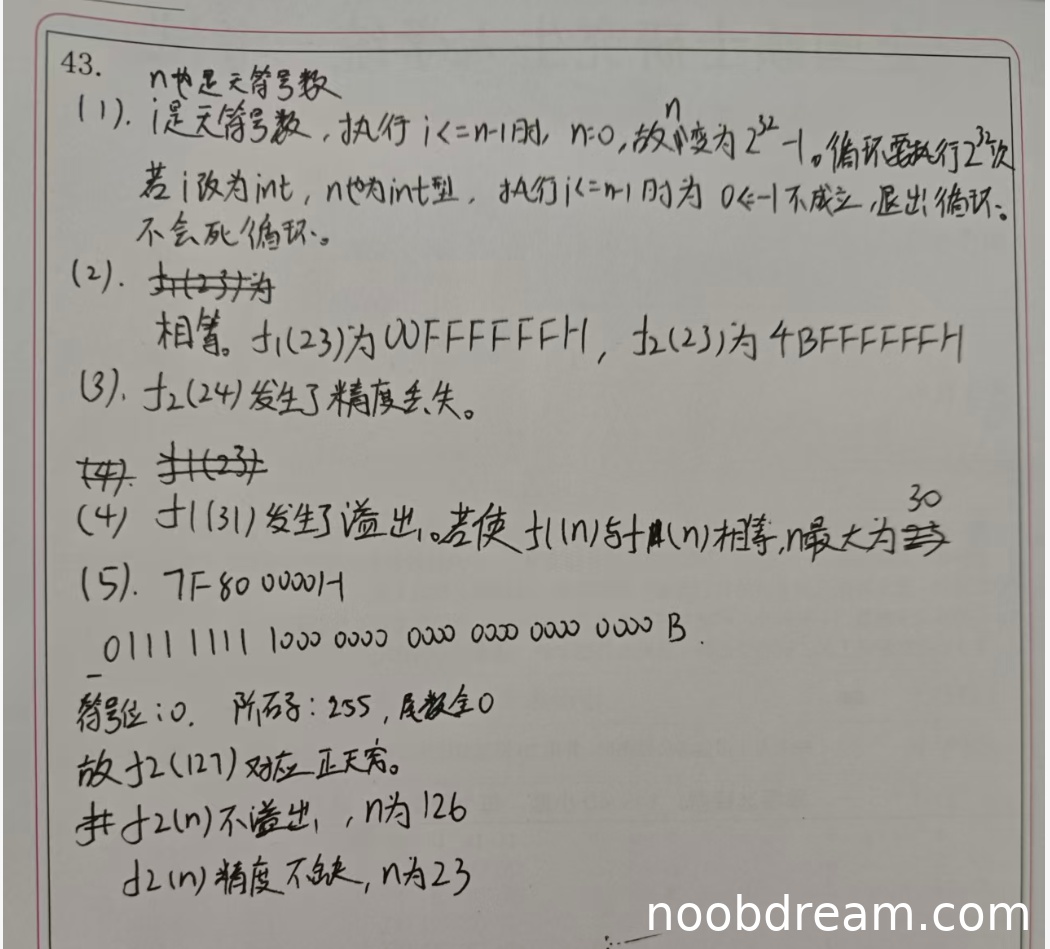 43.
n也是无符号数
(1). i是无符号数，执行 i<=n-1时，n=0，故n-1变为2^32-1。循环要执行2^32次
若 i 改为int，n也为int型，执行i<=n-1时为 0<=-1不成立，退出循环。
不会死循环。
(2). f1(23)为
相等。f1(23)为00FFFFFFH，f2(23)为4BFFFFFFH
(3). f2(24)发生了精度丢失。
(4). f1(23)
(4) f1(31)发生了溢出。若使f1(n)与f(n)相等，n最大为30
(5). 7F80 0000H
0111 1111 1000 0000 0000 0000 0000 0000 B.
符号位：0. 阶码：255，尾数全0
故f2(127)对应正无穷。
f2(n)不溢出，n为126
f2(n)精度不缺，n为23
noobdream.com